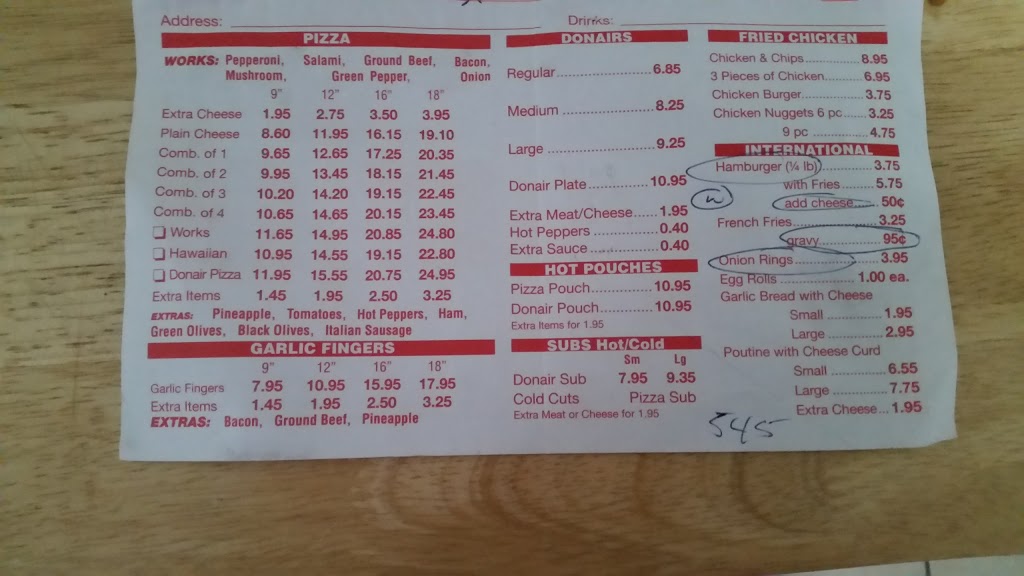 Address: Drinks:
PIZZA
WORKS: Pepperoni, Salami, Ground Beef, Bacon,
Mushroom, Green Pepper, Onion
9" 12" 16" 18"
Extra Cheese 1.95 2.75 3.50 3.95
Plain Cheese 8.60 11.95 16.15 19.10
Comb. of 1 9.65 12.65 17.25 20.35
Comb. of 2 9.95 13.45 18.15 21.45
Comb. of 3 10.20 14.20 19.15 22.45
Comb. of 4 10.65 14.65 20.15 23.45
Works 11.65 14.95 20.85 24.80
Hawaiian 10.95 14.55 19.15 22.80
Donair Pizza 11.95 15.55 20.75 24.95
Extra Items 1.45 1.95 2.50 3.25
EXTRAS: Pineapple, Tomatoes, Hot Peppers, Ham,
Green Olives, Black Olives, Italian Sausage
GARLIC FINGERS
9" 12" 16" 18"
Garlic Fingers 7.95 10.95 15.95 17.95
Extra Items 1.45 1.95 2.50 3.25
EXTRAS: Bacon, Ground Beef, Pineapple
DONAIRS
Regular 6.85
Medium 8.25
Large 9.25
Donair Plate 10.95
Extra Meat/Cheese 1.95
Hot Peppers 0.40
Extra Sauce 0.40
HOT POUCHES
Pizza Pouch 10.95
Donair Pouch 10.95
Extra Items for 1.95
SUBS Hot/Cold
Sm Lg
Donair Sub 7.95 9.35
Cold Cuts Pizza Sub
Extra Meat or Cheese for 1.95
FRIED CHICKEN
Chicken & Chips 8.95
3 Pieces of Chicken 6.95
Chicken Burger 3.75
Chicken Nuggets 6 pc 3.25
9 pc 4.75
INTERNATIONAL
Hamburger (¼ lb) 3.75
with Fries 5.75
add cheese 50¢
French Fries 3.25
gravy 95¢
Onion Rings 3.95
Egg Rolls 1.00 ea.
Garlic Bread with Cheese
Small 1.95
Large 2.95
Poutine with Cheese Curd
Small 6.55
Large 7.75
Extra Cheese 1.95
545